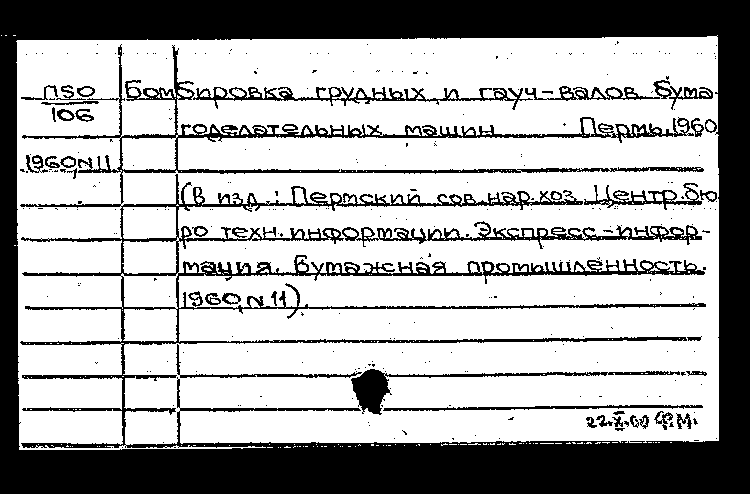 П50 Бомбировка грудных и гауч-валов бума-
106
годелательных машин Пермь, 1960
1960, N 11.
(В изд.: Пермский сов. нар. хоз. Центр. бю
ро техн. информации. Экспресс-инфор-
мация. Бумажная промышленность.
1960, N 11).
22.X.60